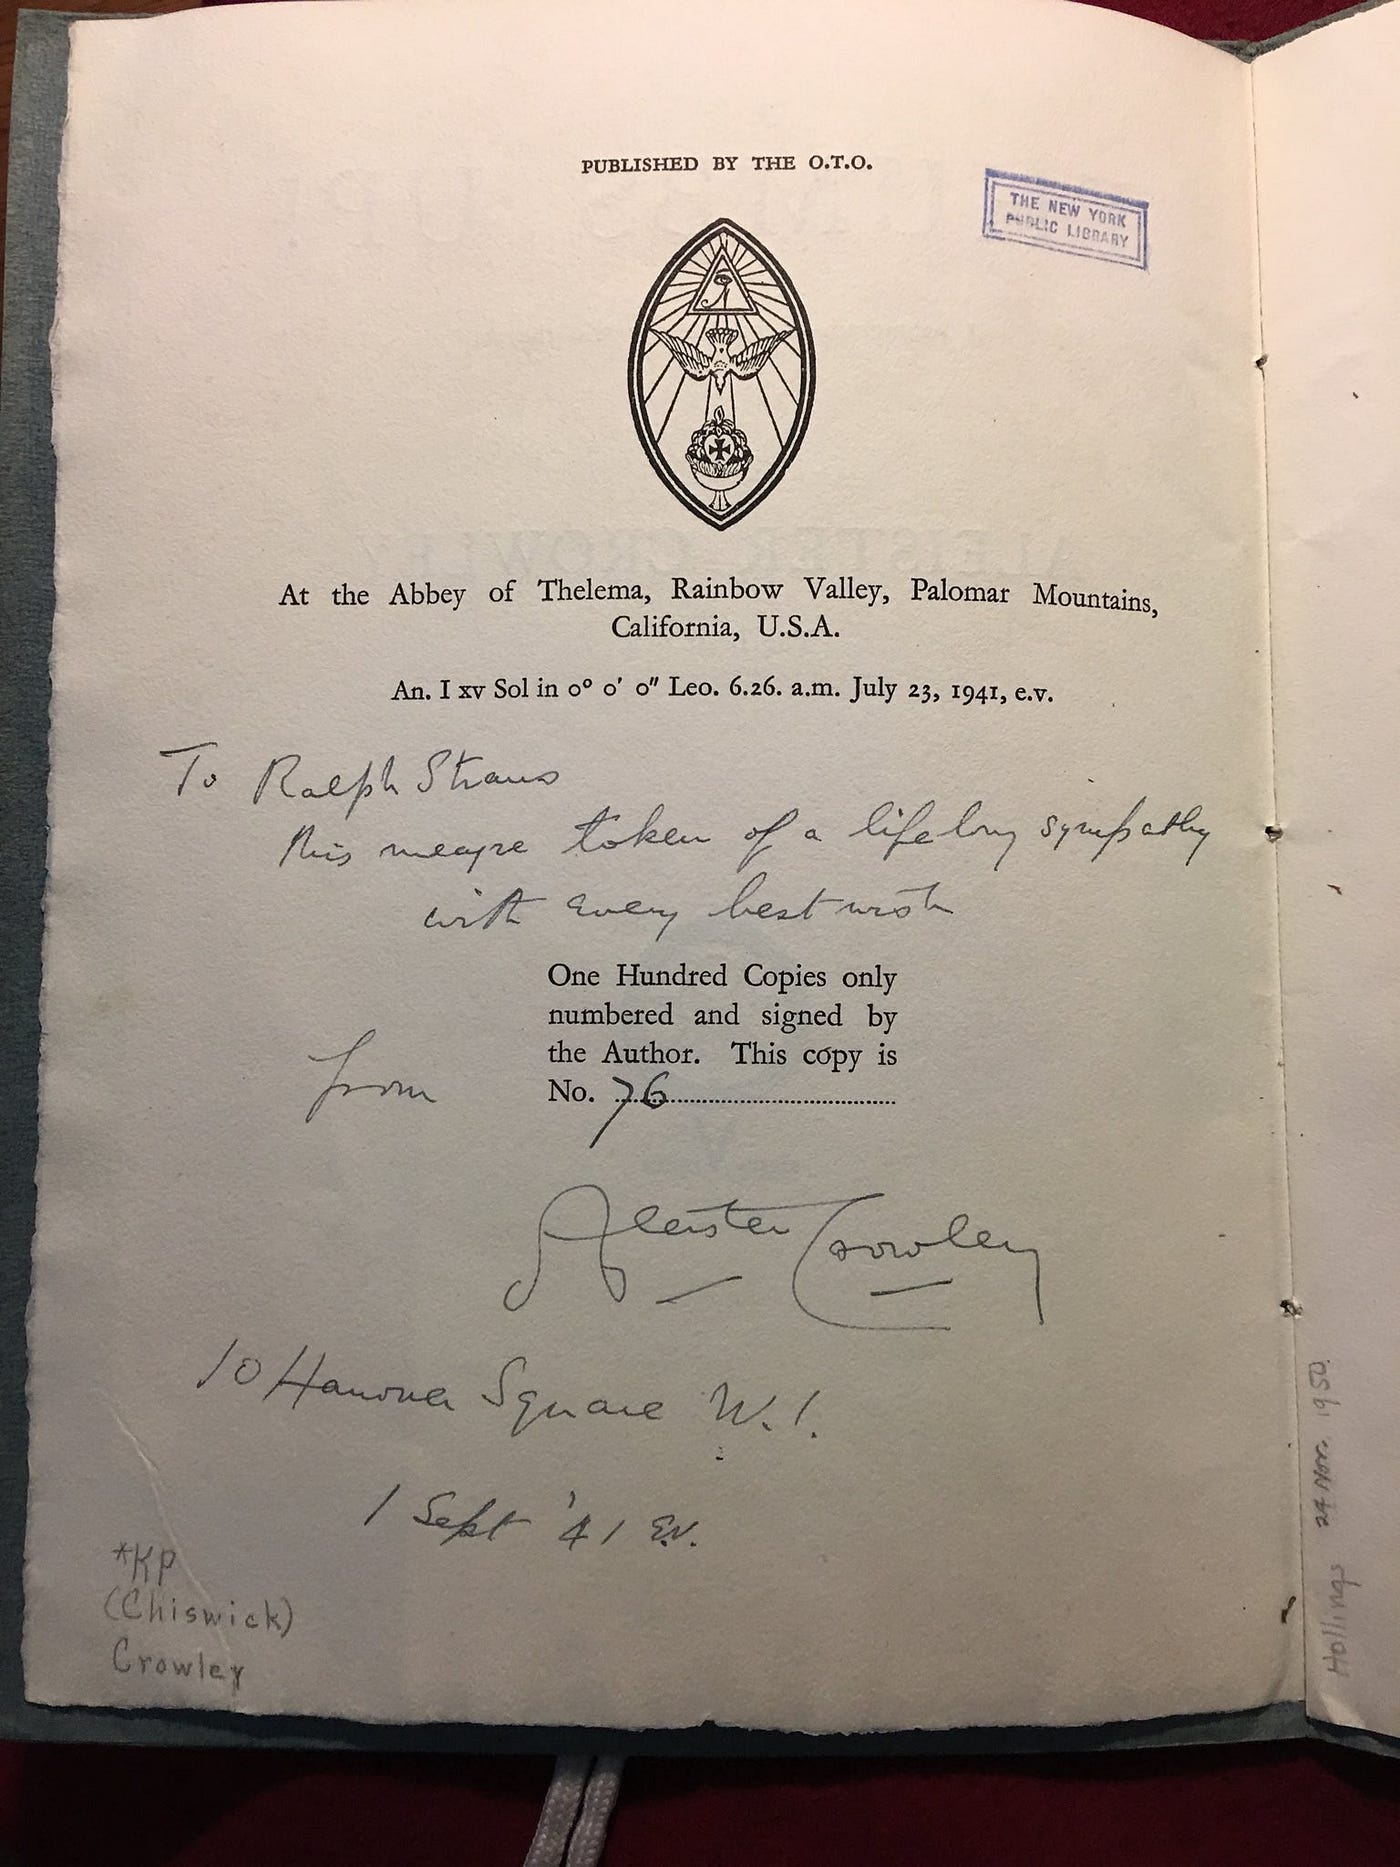 PUBLISHED BY THE O.T.O.
THE NEW YORK
PUBLIC LIBRARY
At the Abbey of Thelema, Rainbow Valley, Palomar Mountains,
California, U.S.A.
An. I xv Sol in 0° 0' 0" Leo. 6.26. a.m. July 23, 1941, e.v.
To Ralph Straus
this meagre token of a lifelong sympathy
with every best wish
One Hundred Copies only
numbered and signed by
the Author. This copy is
from
No. 76
Aleister Crowley
10 Hanover Square W.1.
1 Sept '41 E.V.
*KP
(Chiswick)
Crowley
Hollings 24 Nov. 1950.